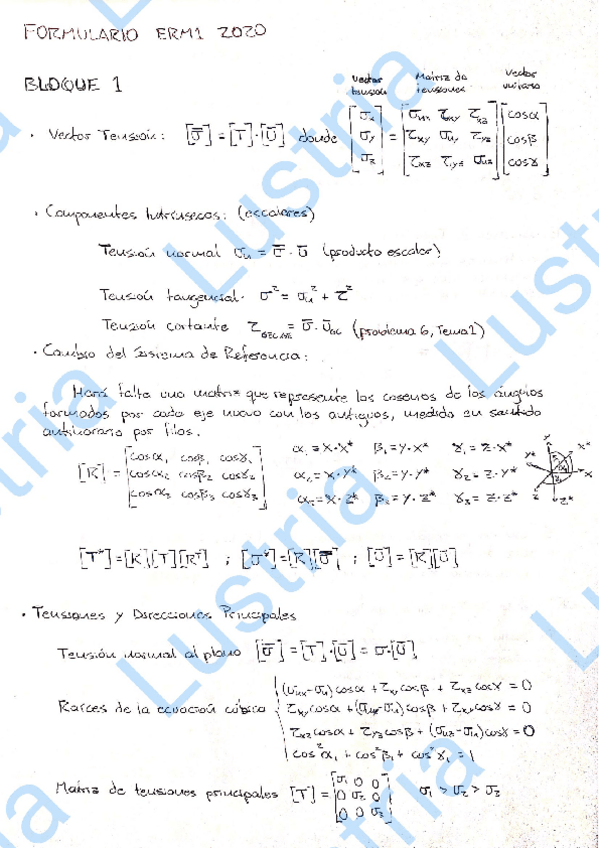 FORMULARIO ERM1 2020
BLOQUE 1
Vector tensión Matriz de tensiones Vector unitario
· Vector Tensión: [σ̅] = [T]·[U̅] donde [σx σy σz] = [σnx τxy τxz; τxy σny τyz; τxz τyz σnz] [cosα cosβ cosγ]
· Componentes Intrínsecas: (escalares)
Tensión normal σn = σ̅ · u̅ (producto escalar)
Tensión tangencial · σ² = σn² + τ²
Tensión cortante = σ̅ · (problema 6, Tema 1)
· Cambio del Sistema de Referencia:
Hará falta una matriz que represente los cosenos de los ángulos
formados por cada eje nuevo con los antiguos, medido en sentido
antihorario por filas.
[R] = [cosα₁ cosβ₁ cosγ₁; cosα₂ cosβ₂ cosγ₂; cosα₃ cosβ₃ cosγ₃]
α₁ = x·x* β₁ = y·x* γ₁ = z·x*
α₂ = x·y* β₂ = y·y* γ₂ = z·y*
α₃ = x·z* β₃ = y·z* γ₃ = z·z*
y x* y* x z z*
[T*] = [R][T][Rᵀ] ; [σ*] = [R][σ̅] ; [U̅] = [R][U̅]
· Tensiones y Direcciones Principales
Tensión normal al plano [σ̅] = [T]·[U̅] = σ·[U̅]
Raíces de la ecuación cúbica
(σnx - σn) cosα + τxy cosβ + τxz cosγ = 0
τxy cosα + (σny - σn) cosβ + cosγ = 0
τxz cosα + τyz cosβ + (σnz - σn) cosγ = 0
cos²α₁ + cos²β₁ + cos²γ₁ = 1
Matriz de tensiones principales [T] = [σ₁ 0 0; 0 σ₂ 0; 0 0 σ₃] σ₁ > σ₂ > σ₃
Lustria